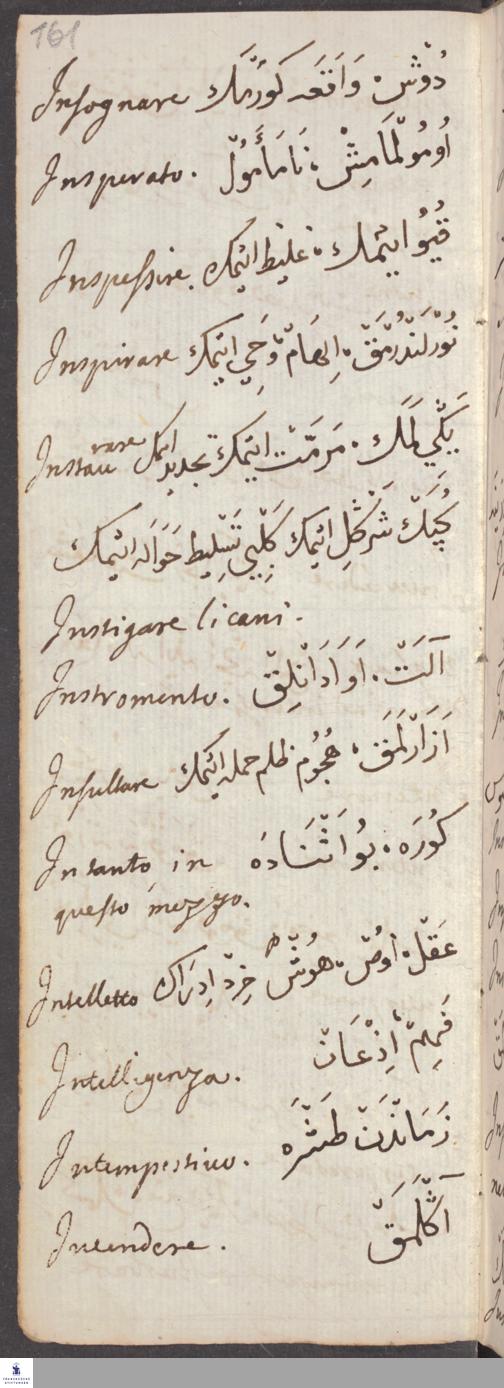 161
Insognare دُوْش ۰ وَاقَعَه كورَمَك
Insperato. اُومُولْمَامِشْ ، نَامَأمُولْ
Inspessire. قُيُو ايتمك ، غليظ ايتمك
Inspirare نُورْلَنْدُرْمَقْ ، اِلهَامْ وَحِي ايتمك
Instaurare يَكّي لَمَك ۰ مَرمَّتْ ايتمك تجديد ايتمك
شَرْكُل ايتمك كَلْبِي تَسْلِيط حَوَاله ايتمك
Instigare li cani.
Instromento. آلَتْ ۰ اَوَادَانْلِقْ
Insultare اَزَارْلَمَق ، هُجُوم ظلم حمله ايتمك
Intanto in كُورَه ، بُو اَثْنَادَه
questo mezzo.
Intelletto عَقْل ۰ اُوصْ ، هُوشْ خِرَدْ اِدرَاك
Intelligenza. فَهِمْ ، اِذْعَانْ
Intempestivo. زَمَانْدَنْ طَشْرَه
Intendere. آكْلَمَقْ